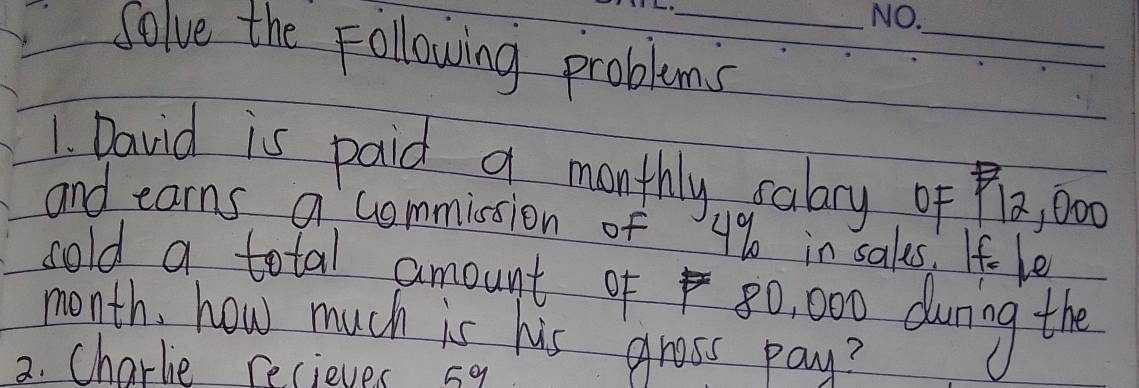 NO.
Solve the Following problems
1. David is paid a monthly salary of ₱12,000
and earns a commission of 4% in sales. If he
sold a total amount of ₱ 80,000 during the
month, how much is his gross pay?
2. Charlie recieves 5%